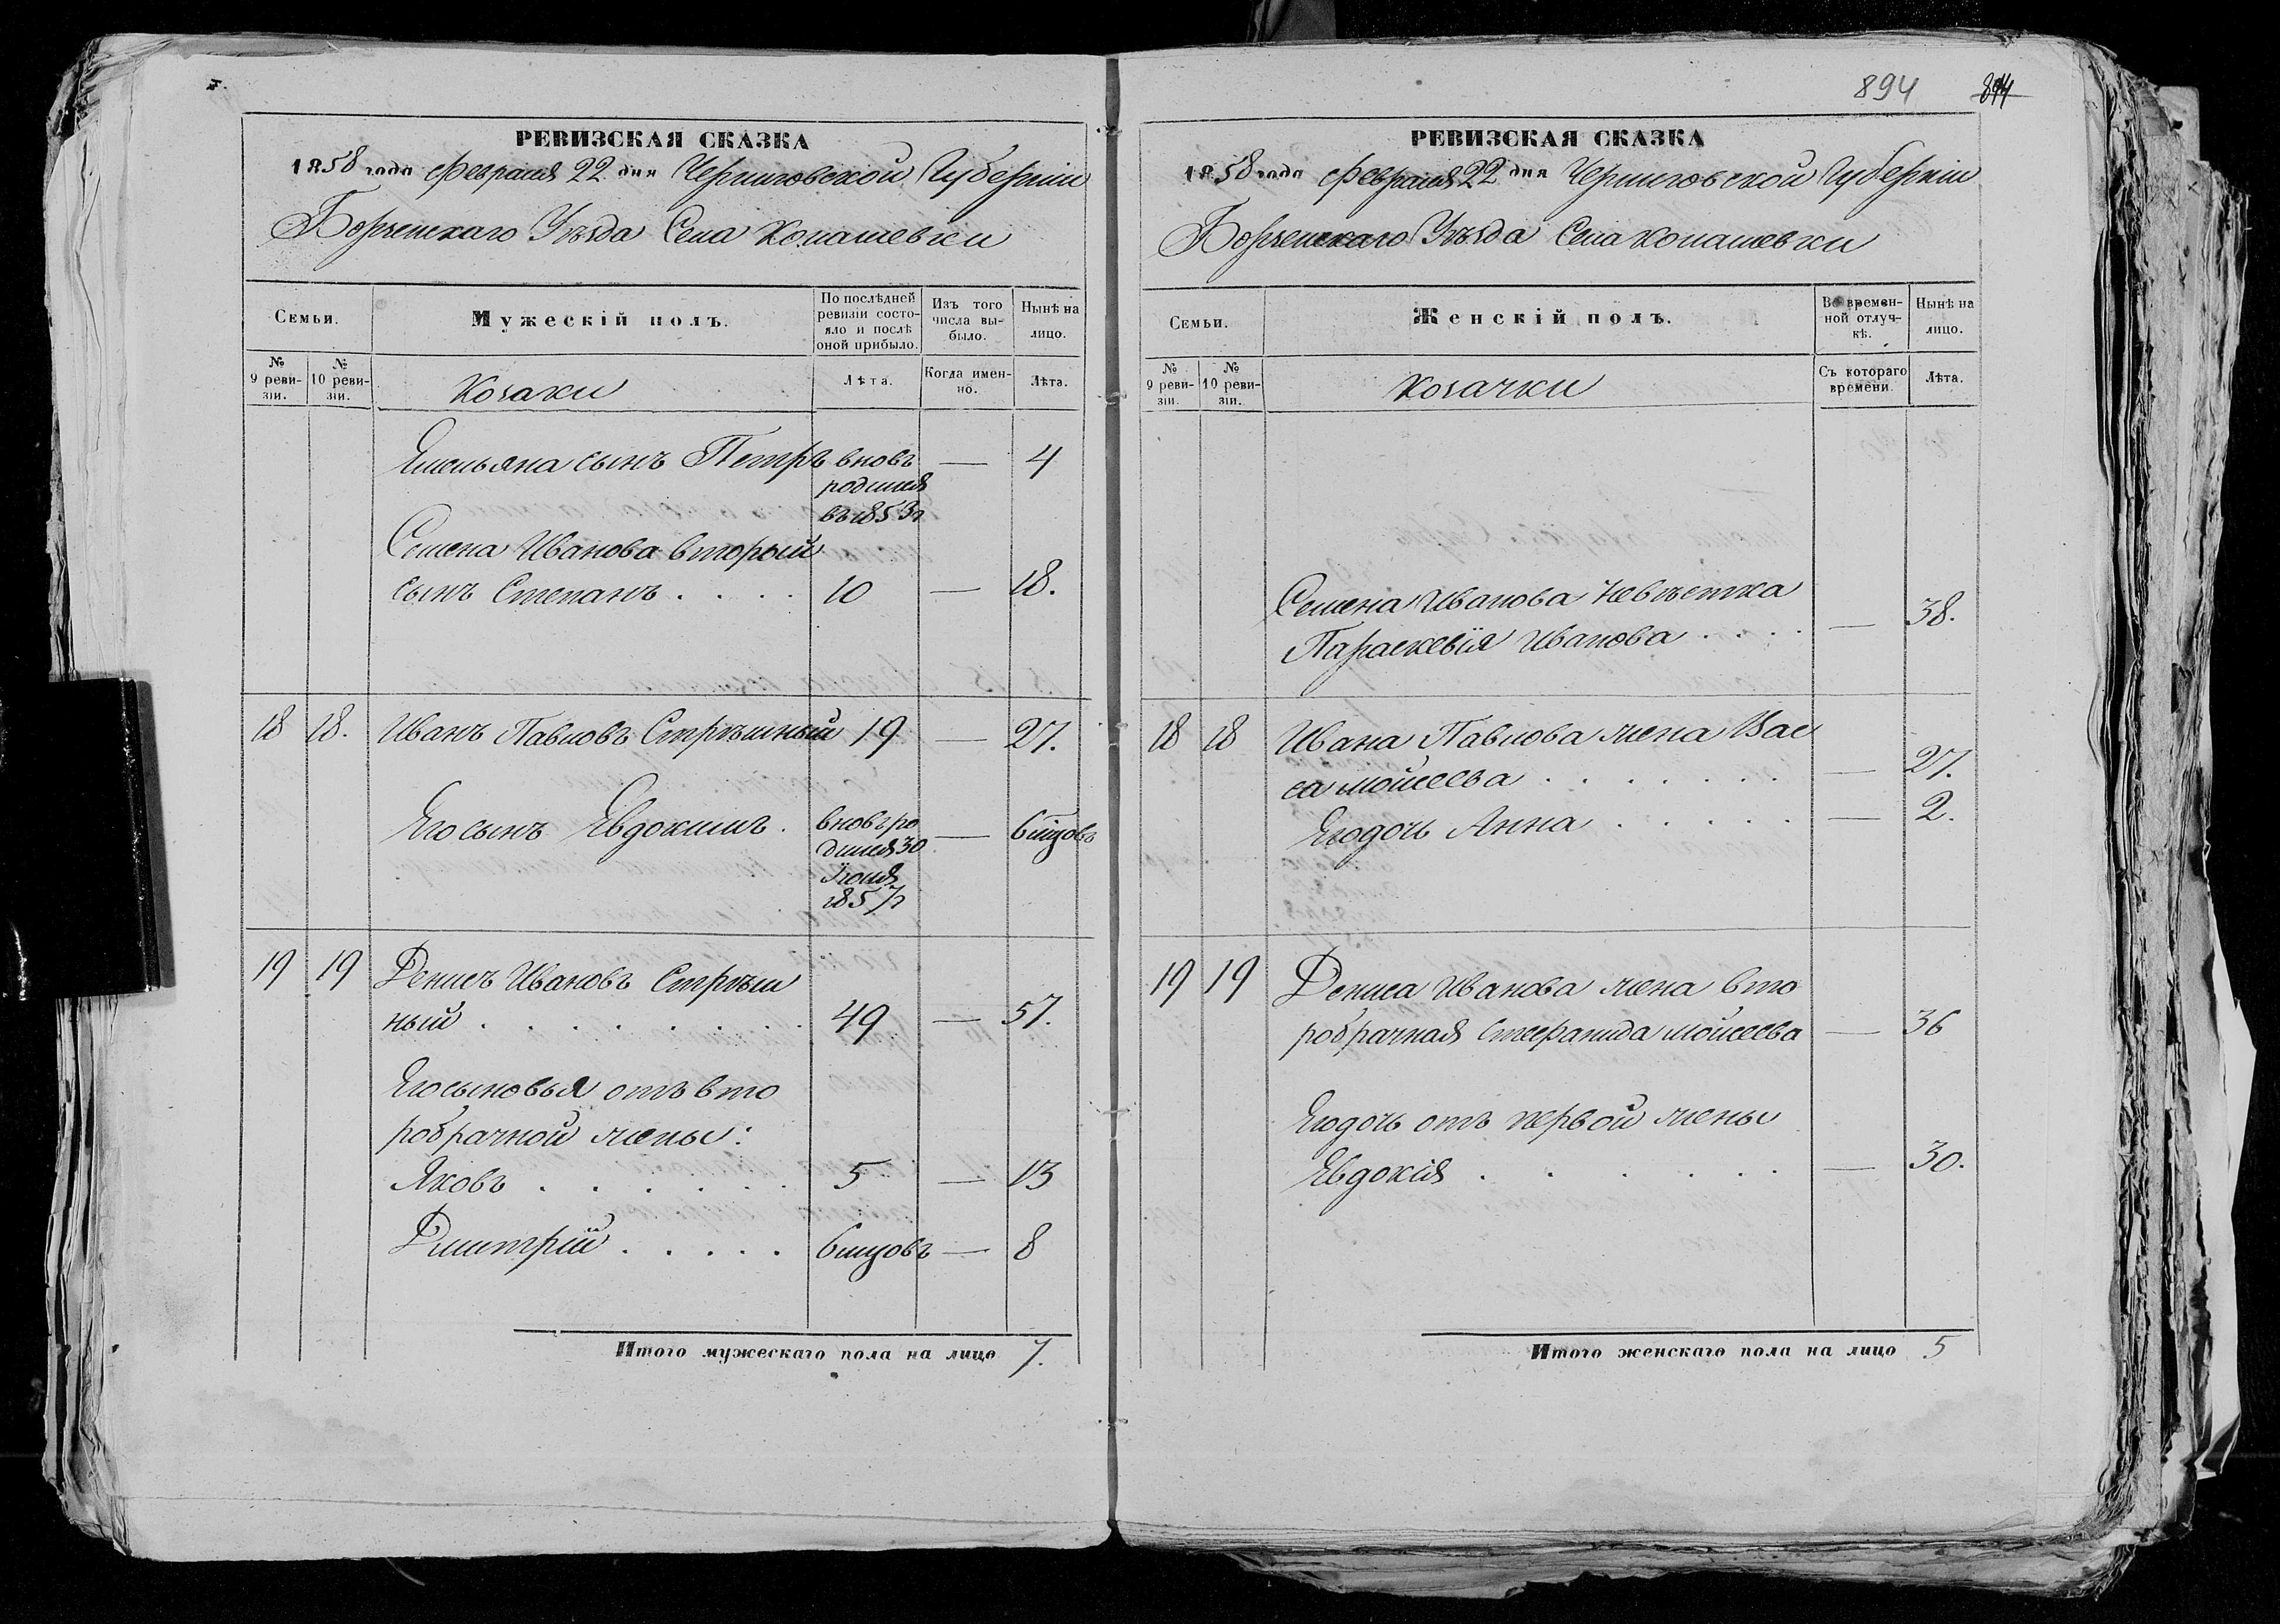 РЕВИЗСКАЯ СКАЗКА
1858 года Февраля 22 дня Черниговской Губерніи
Борзенскаго Уѣзда Села Копашевки
Семьи.
Мужескій полъ.
По послѣдней ревизіи состояло и послѣ оной прибыло.
Изъ того числа выбыло.
Нынѣ на лицо.
№ 9 ревизіи.
№ 10 ревизіи.
Козаки
Лѣта.
Когда именно.
Лѣта.
Емельяна сынъ Петръ вновь — 4
родился
въ 1853 г
Семена Иванова вторый
сынъ Степанъ . . . . 10 — 18.
18 18. Иванъ Павловъ Стрѣшный 19 — 27.
Его сынъ Евдокимъ . вновь ро — 6 мцовъ
дился 30
Іюля
1857 г
19 19 Денисъ Ивановъ Стрѣш
ный . . . . . . . . 49 — 57.
Его сыновья отъ вто
робрачной жены:
Яковъ . . . . . . 5 — 13
Дмитрій . . . . . 6 мцовъ — 8
Итого мужескаго пола на лицо 7.
894
РЕВИЗСКАЯ СКАЗКА
1858 года Февраля 22 дня Черниговской Губерніи
Борзенскаго Уѣзда Села Копашевки
Семьи.
Женскій полъ.
Во временной отлучкѣ.
Нынѣ на лицо.
№ 9 ревизіи.
№ 10 ревизіи.
Козачки
Съ котораго времени.
Лѣта.
Семена Иванова невѣстка
Параскевія Иванова . . . . — 38.
18 18 Ивана Павлова жена Вас
са Мойсеева . . . . . . . — 27.
Его дочь Анна . . . . . — 2.
19 19 Дениса Иванова жена вто
робрачная Стефанида Мойсеева — 36
Его дочь отъ первой жены
Евдокія . . . . . . — 30.
Итого женскаго пола на лицо 5